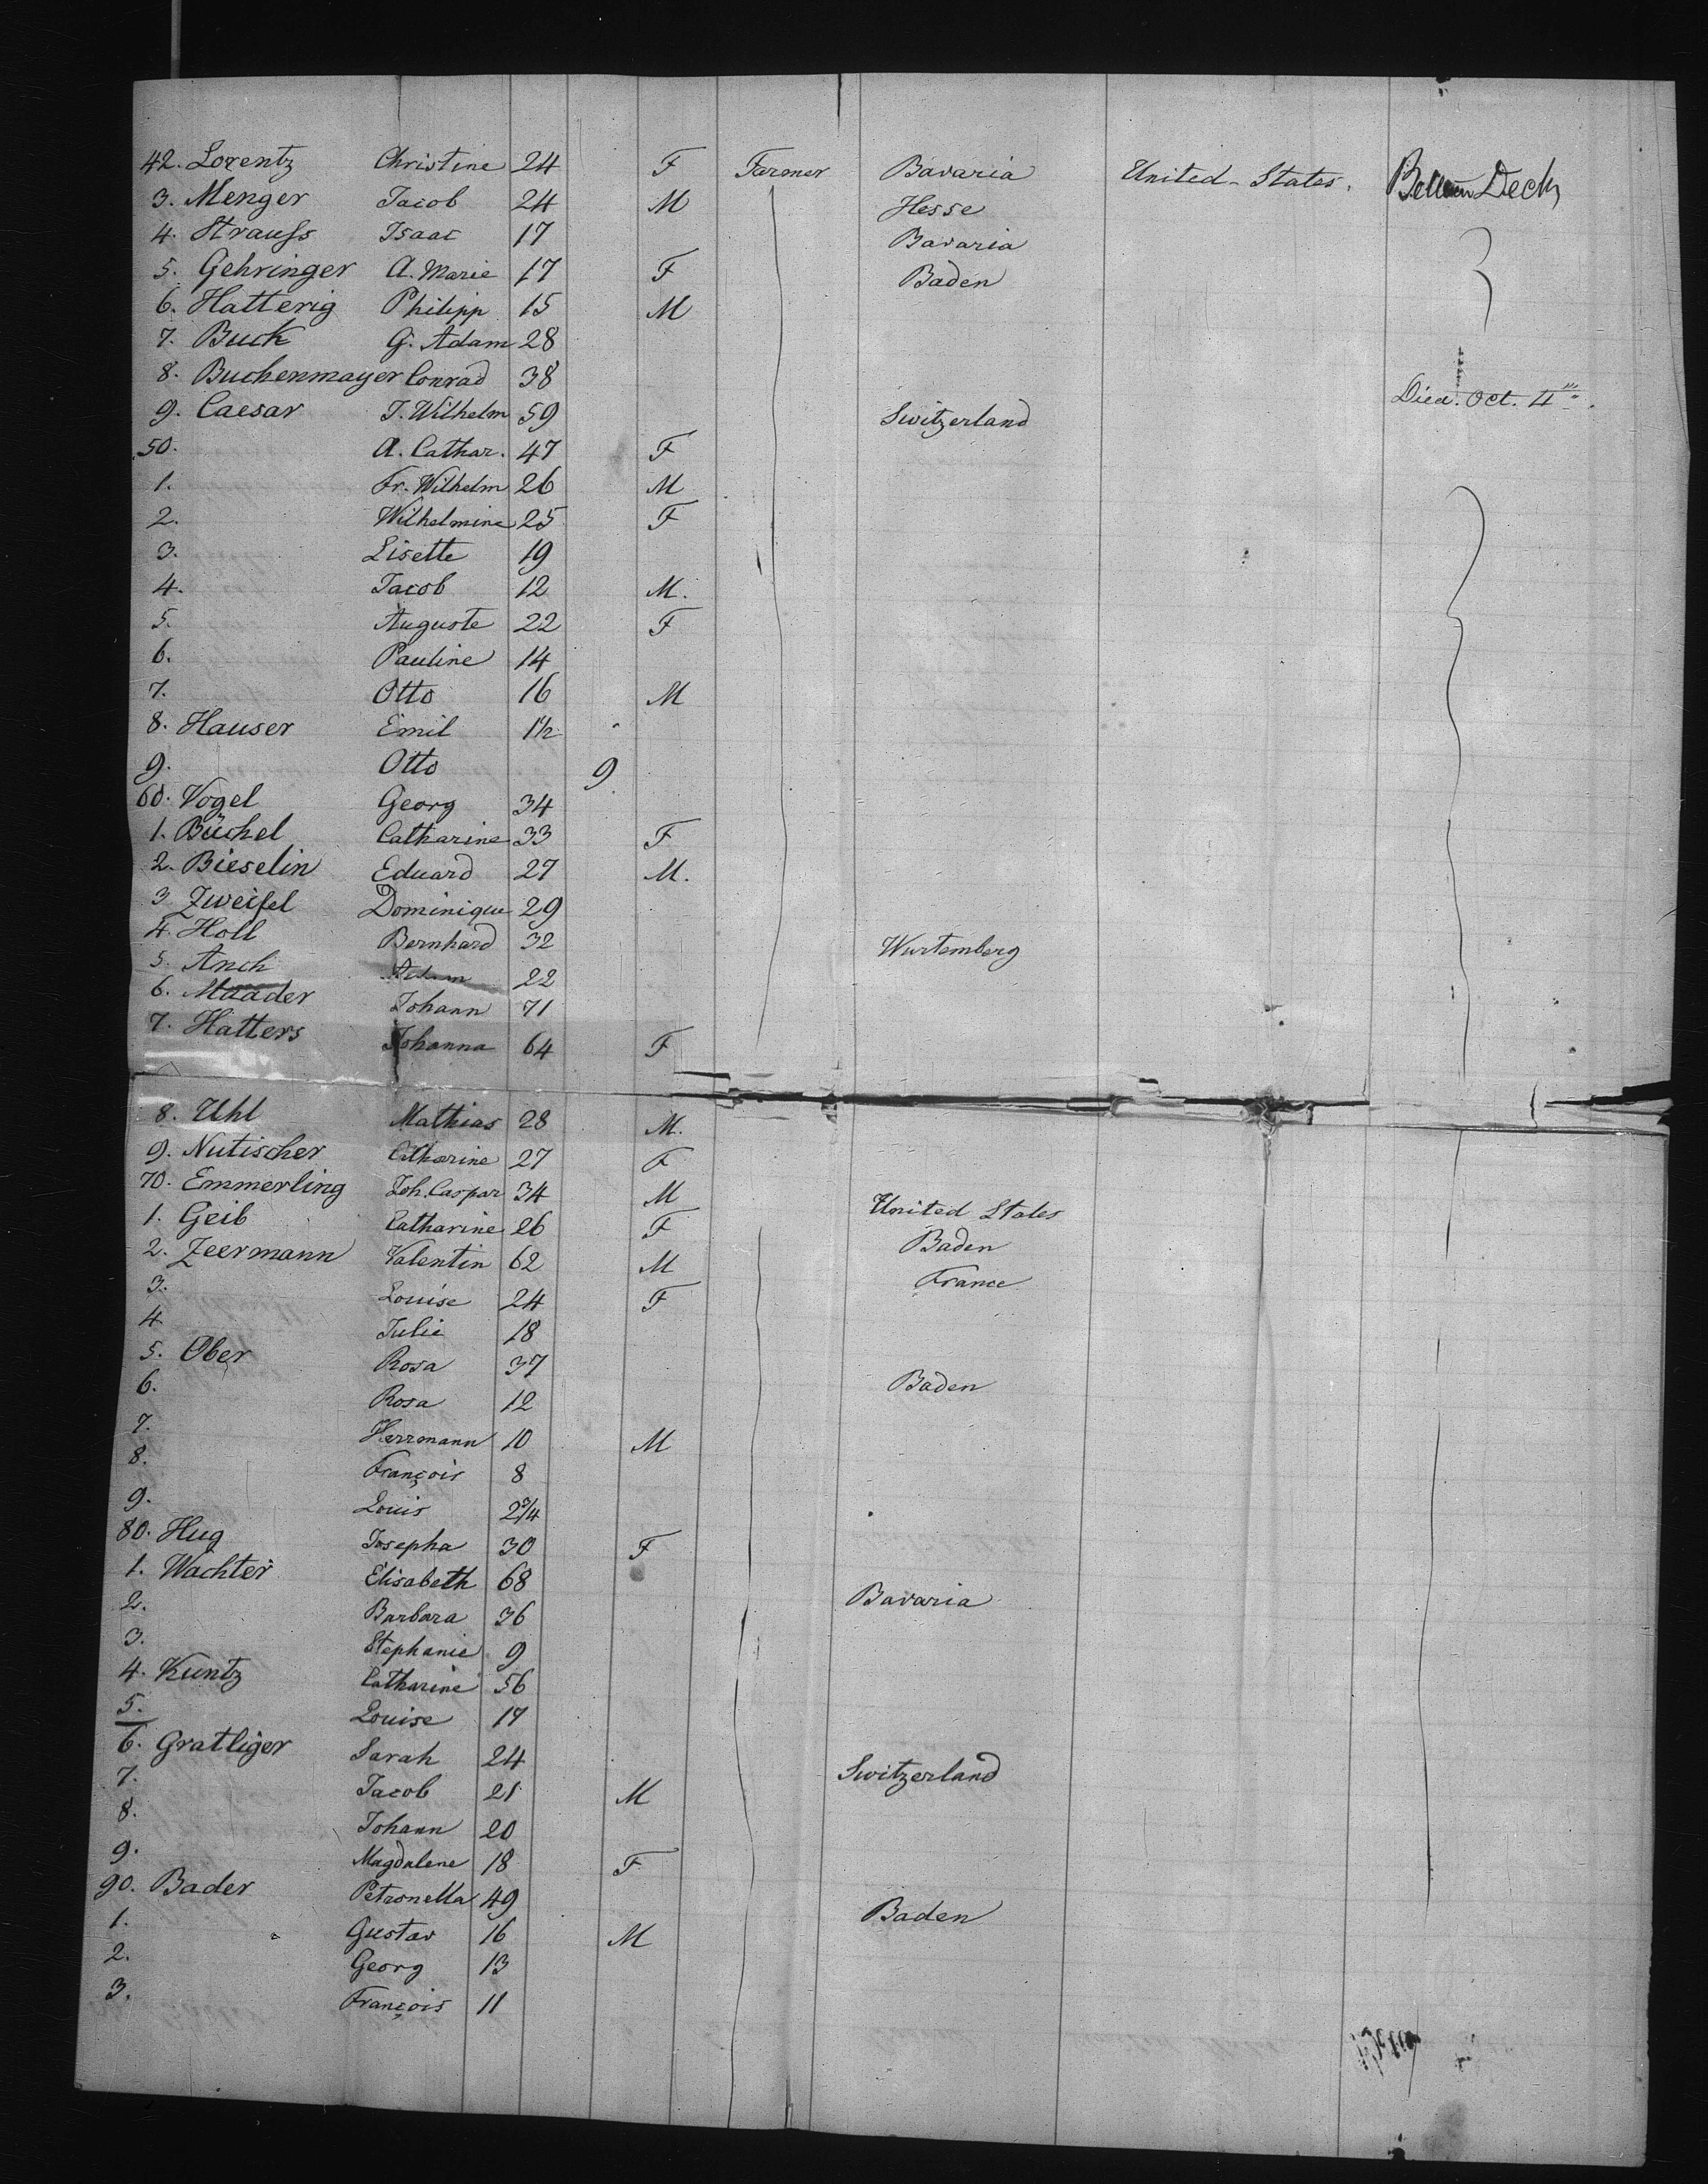 42. Lorentz Christine 24 F Farmer Bavaria United-States. Between Deck
3. Menger Jacob 24 M Hesse
4. Strauss Isaac 17 Bavaria
5. Gehringer A. Marie 17 F Baden
6. Hatterig Philipp 15 M
7. Buck G. Adam 28
8. Buchenmayer Conrad 38 Died. Oct. 4th
9. Caesar J. Wilhelm 59 Switzerland
50. A. Cathar. 47 F
1. Fr. Wilhelm 26 M
2. Wilhelmine 25 F
3. Lisette 19
4. Jacob 12 M.
5. Auguste 22 F
6. Pauline 14
7. Otto 16 M
8. Hauser Emil 1½
9. Otto 9
60. Vogel Georg 34
1. Büchel Catharine 33 F
2. Bieselin Eduard 27 M.
3 Zweifel Dominique 29
4. Holl Bernhard 32 Wurtemberg
5. Anch Adam 22
6. Maader Johann 71
7. Hatters Johanna 64 F
8. Uhl Mathias 28 M.
9. Nutischer Catharine 27 F
70. Emmerling Joh. Caspar 34 M United States
1. Geib Catharine 26 F Baden
2. Zeermann Valentin 62 M France
3. Louise 24 F
4 Julie 18
5. Ober Rosa 37 Baden
6. Rosa 12
7. Herrmann 10 M
8. François 8
9. Louis 2¾
80. Hug Josepha 30 F
1. Wachter Elisabeth 68 Bavaria
2. Barbara 36
3. Stephanie 9
4. Kuntz Catharine 56
5. Louise 17
6. Gratliger Sarah 24 Switzerland
7. Jacob 21 M
8. Johann 20
9. Magdalene 18 F
90. Bader Petronella 49 Baden
1. Gustav 16 M
2. Georg 13
3. François 11